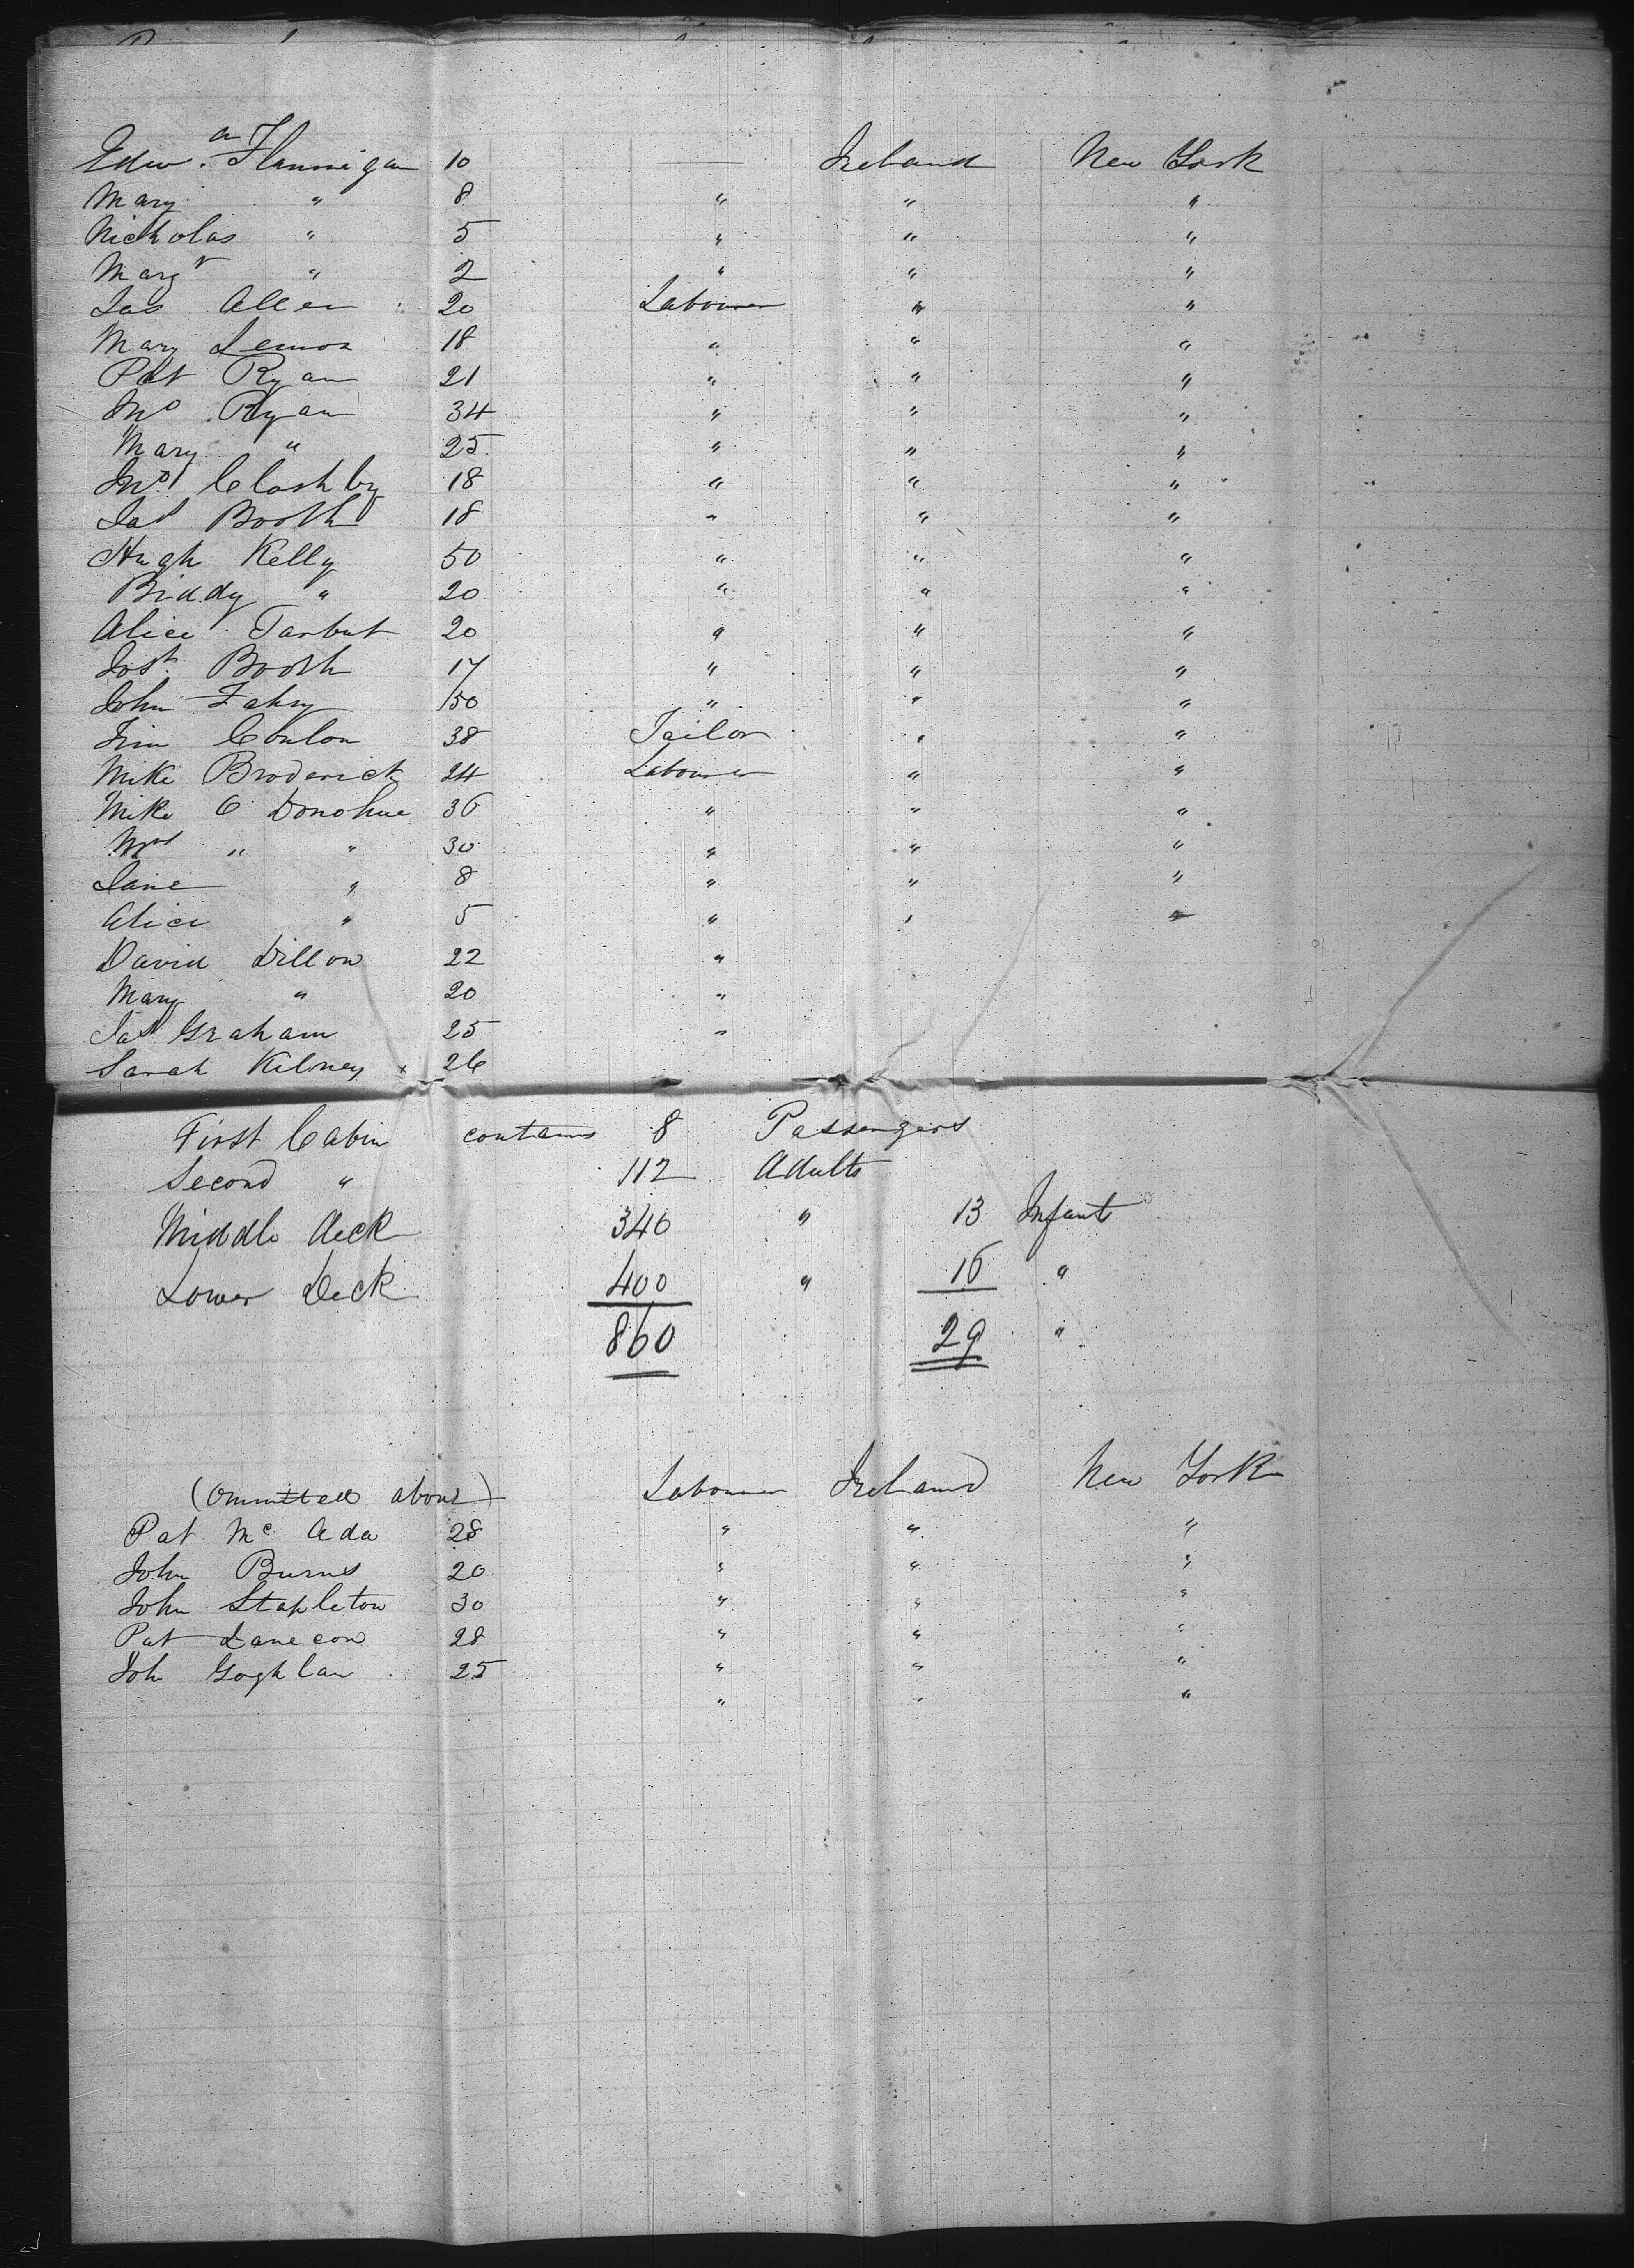 Edwᵈ Flannigan 10 — Ireland New York
Mary " 8 " " "
Nicholas " 5 " " "
Margᵗ " 2 " " "
Jas Allen 20 Labourer " "
Mary Lemon 18 " " "
Pat Ryan 21 " " "
Jnº Ryan 34 " " "
Mary " 25 " " "
Jnº Clashby 18 " " "
Jas Booth 18 " " "
Hugh Kelly 50 " " "
Biddy " 20 " " "
Alice Tarbut 20 " " "
Josʰ Booth 17 " " "
John Fahy 50 " " "
Jim Conlon 38 Tailor " "
Mike Broderick 24 Labourer " "
Mike O Donohue 36 " " "
Mrs " " 30 " " "
Jane " 8 " " "
Alice " 5 " " "
David Dillon 22 "
Mary " 20 "
Jas Graham 25 "
Sarah 26
First Cabin contains 8 Passengers
Second " 112 Adults
Middle deck 340 " 13 Infants
Lower Deck 400 " 16 "
860 29 "
(Ommitted above) Labourer Ireland New York
Pat Mc Ada 28 " " "
John Burns 20 " " "
John Stapleton 30 " " "
Pat 28 " " "
Joh Goghlan 25 " " "
" " "